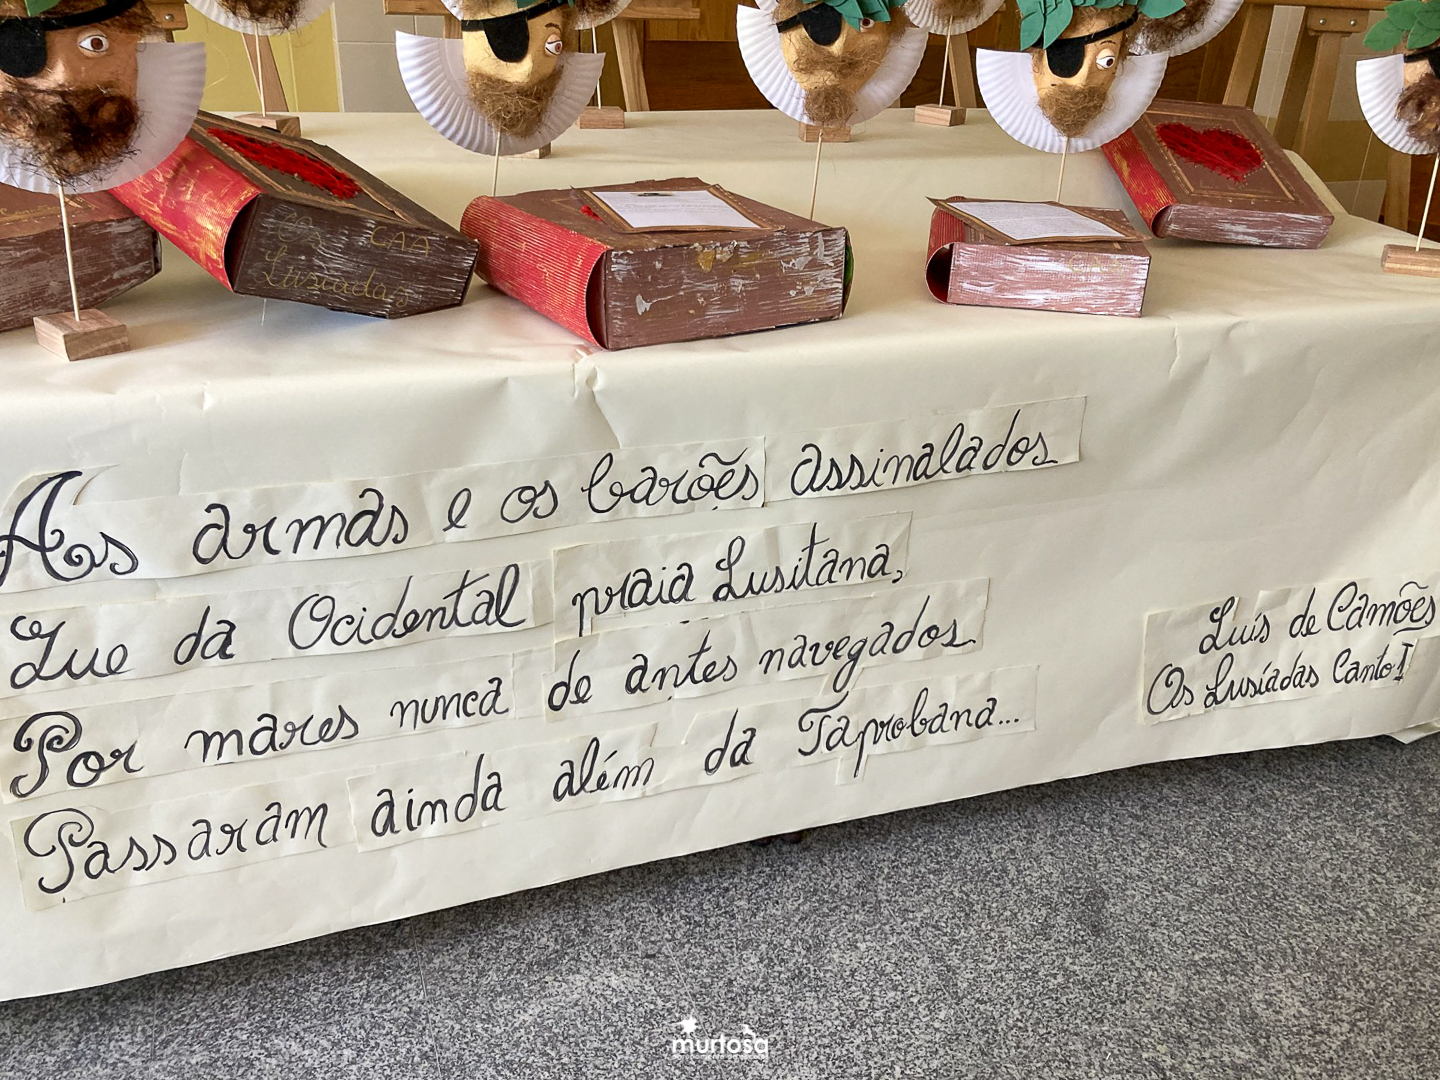 CAA
Lusíadas
As armas e os barões assinalados
Que da Ocidental praia Lusitana,
Por mares nunca de antes navegados
Passaram ainda além da Taprobana...
Luís de Camões
Os Lusíadas Canto I
murtosa